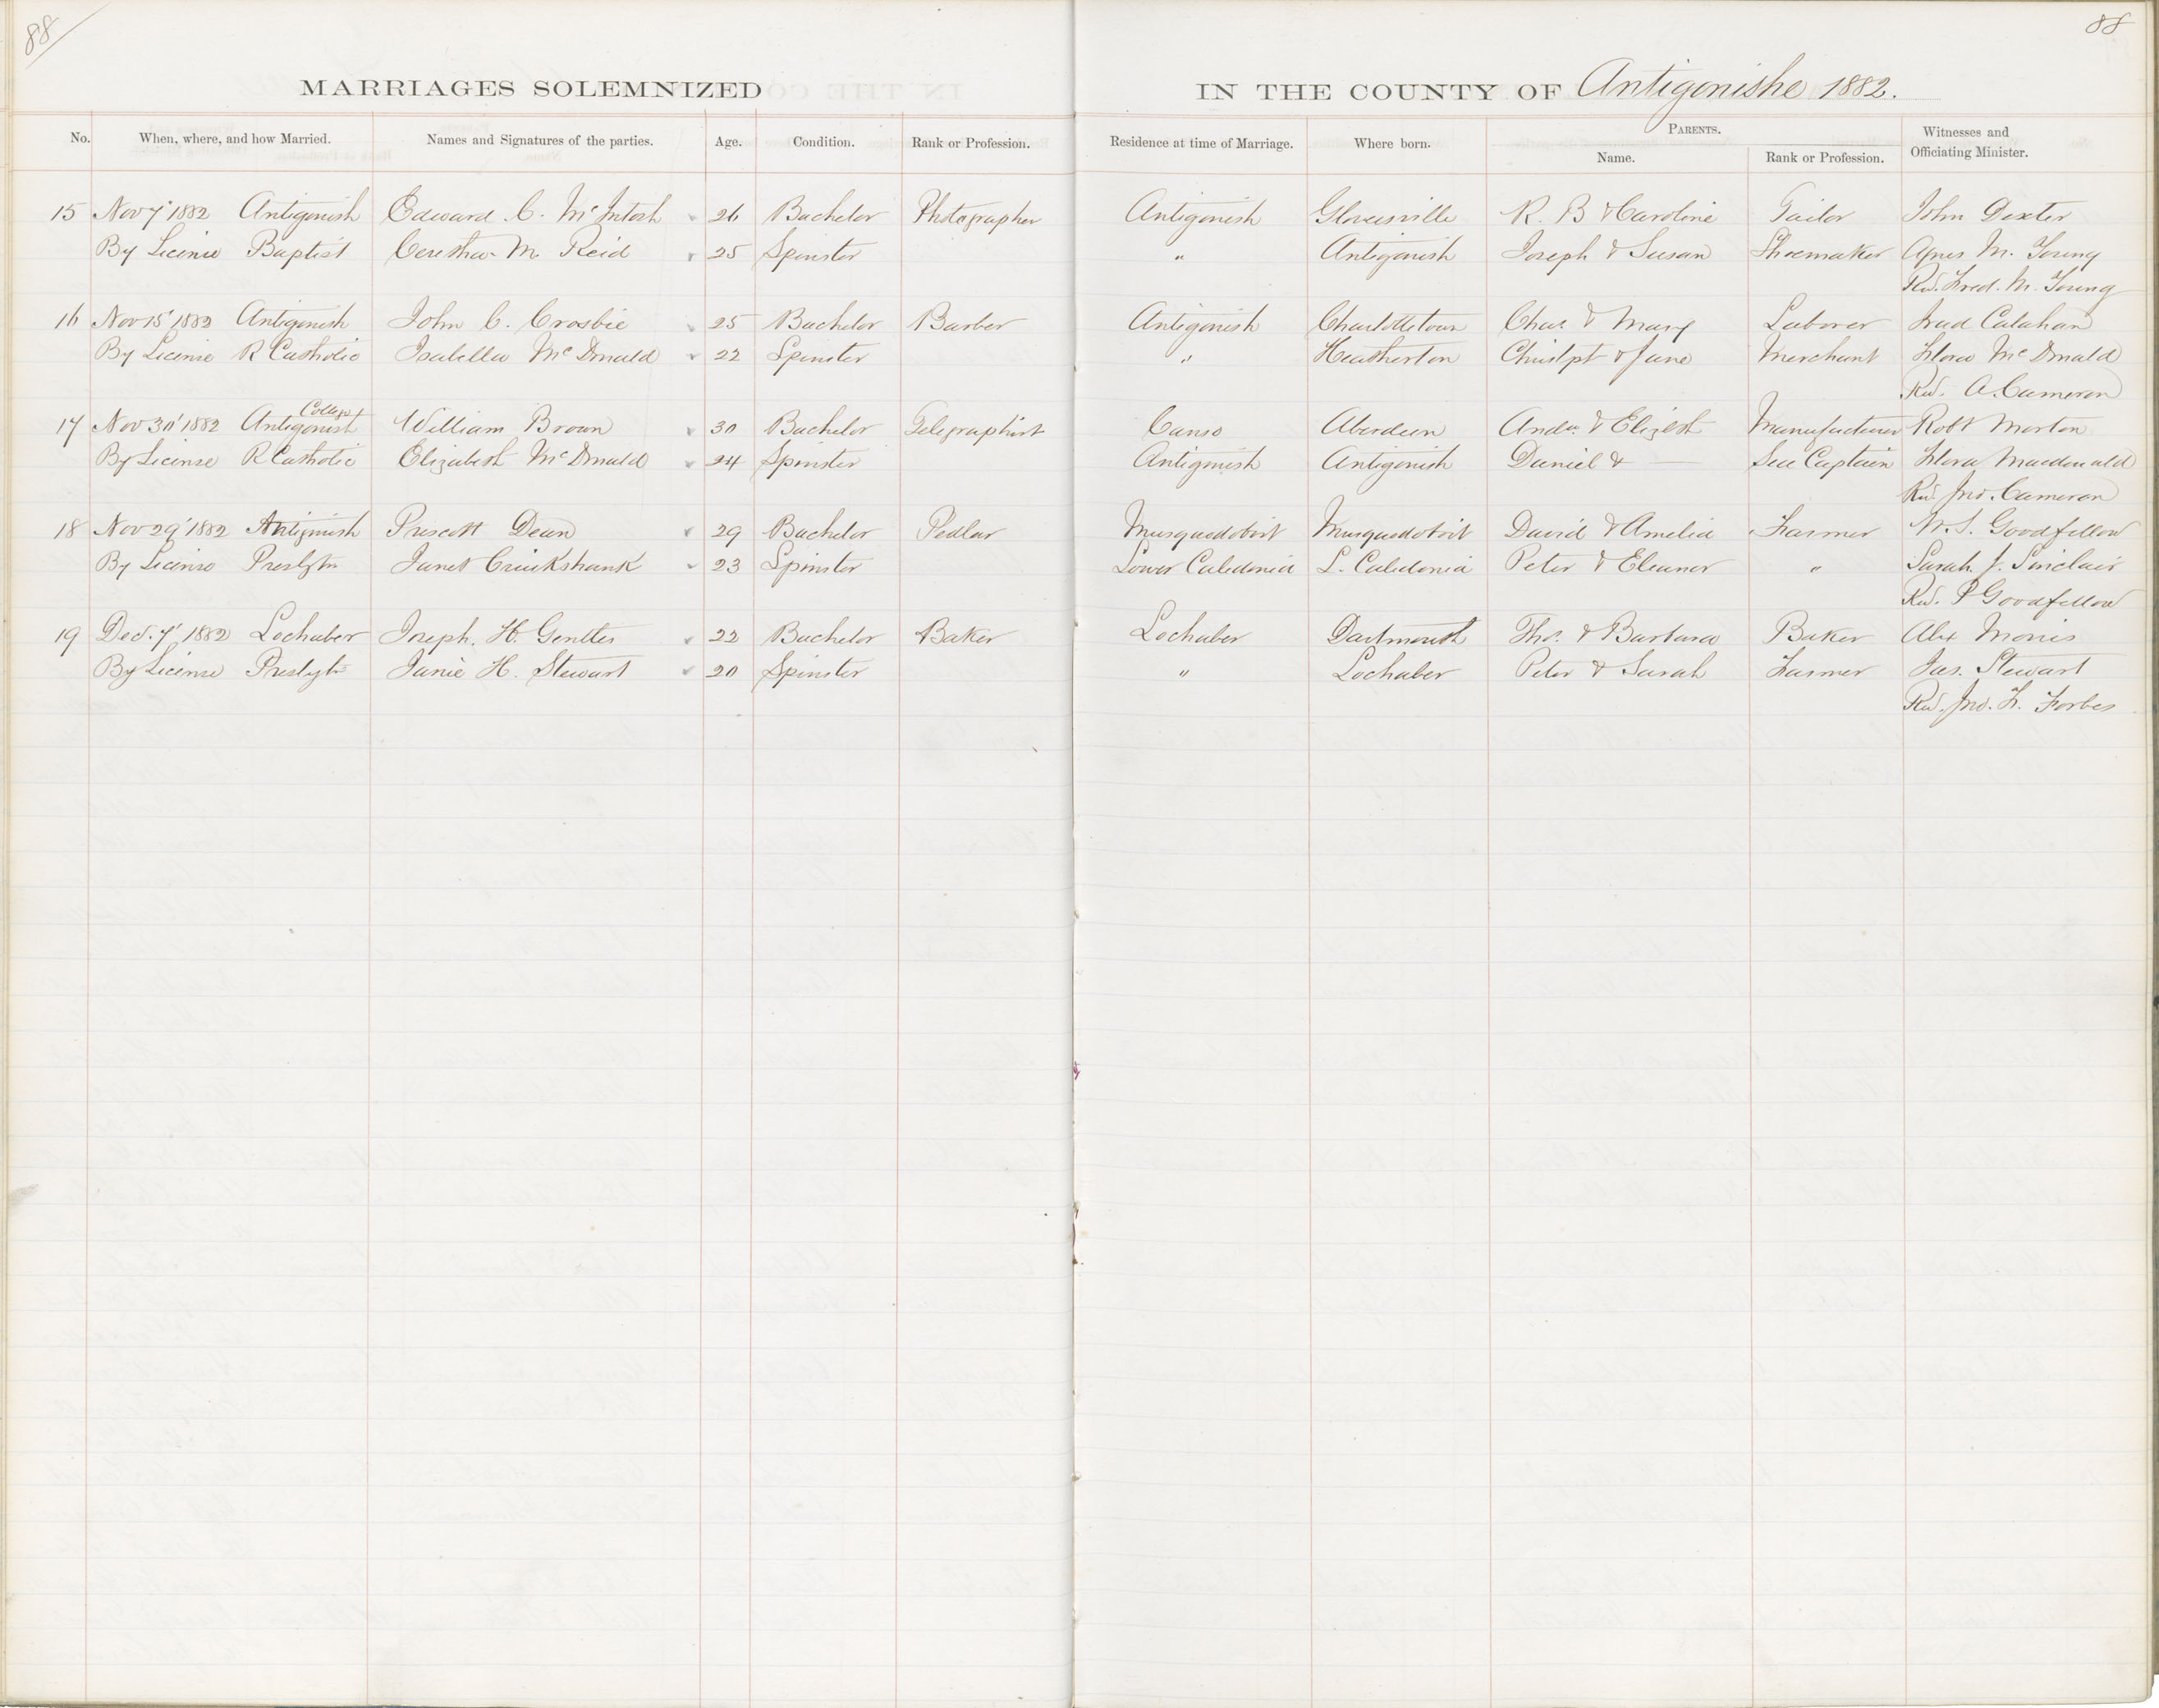 88 88
MARRIAGES SOLEMNIZED IN THE COUNTY OF Antigonishe 1882.
No. When, where, and how Married. Names and Signatures of the parties. Age. Condition. Rank or Profession. Residence at time of Marriage. Where born. PARENTS. Witnesses and Officiating Minister.
Name. Rank or Profession.
15 Nov 7' 1882 Antigonish Edward C. McIntosh 26 Bachelor Photographer Antigonish Gloversville R. B & Caroline Tailor John Dexter
By License Baptist M. Reid 25 Spinster " Antigonish Joseph & Susan Shoemaker Agnes M. Young
Rev. Fred. M. Young
16 Nov 15' 1882 Antigonish John C. Crosbie 25 Bachelor Barber Antigonish Charlottetown Chas. & Mary Laborer Calahan
By License R Catholic Isabella McDonald 22 Spinster " Heatherton Christpr & Jane Merchant Flora McDonald
Rev. A. Cameron
College
17 Nov 30' 1882 Antigonish William Brown 30 Bachelor Telegraphist Canso Aberdeen Andw. & Elizbth Manufacturer Robt Morton
By License R Catholic Elizabeth McDonald 24 Spinster Antigonish Antigonish Daniel & — Sea Captain Flora Macdonald
Rev. Jno. Cameron
18 Nov 29' 1882 Antigonish Prescott Dean 29 Bachelor Pedlar Musquodoboit Musquodoboit David & Amelia Farmer Goodfellow
By License Presbytn Janet Cruikshank 23 Spinster Lower Caledonia L. Caledonia Peter & Eleanor " Sarah J. Sinclair
Rev. P Goodfellow
19 Dec. 7' 1882 Lochaber Joseph. H. Gentles 22 Bachelor Baker Lochaber Dartmouth Thos. & Barbara Baker Alex Morris
By License Presbytn Janie H. Stewart 20 Spinster " Lochaber Peter & Sarah Farmer Jas. Stewart
Rev. Jno. F. Forbes